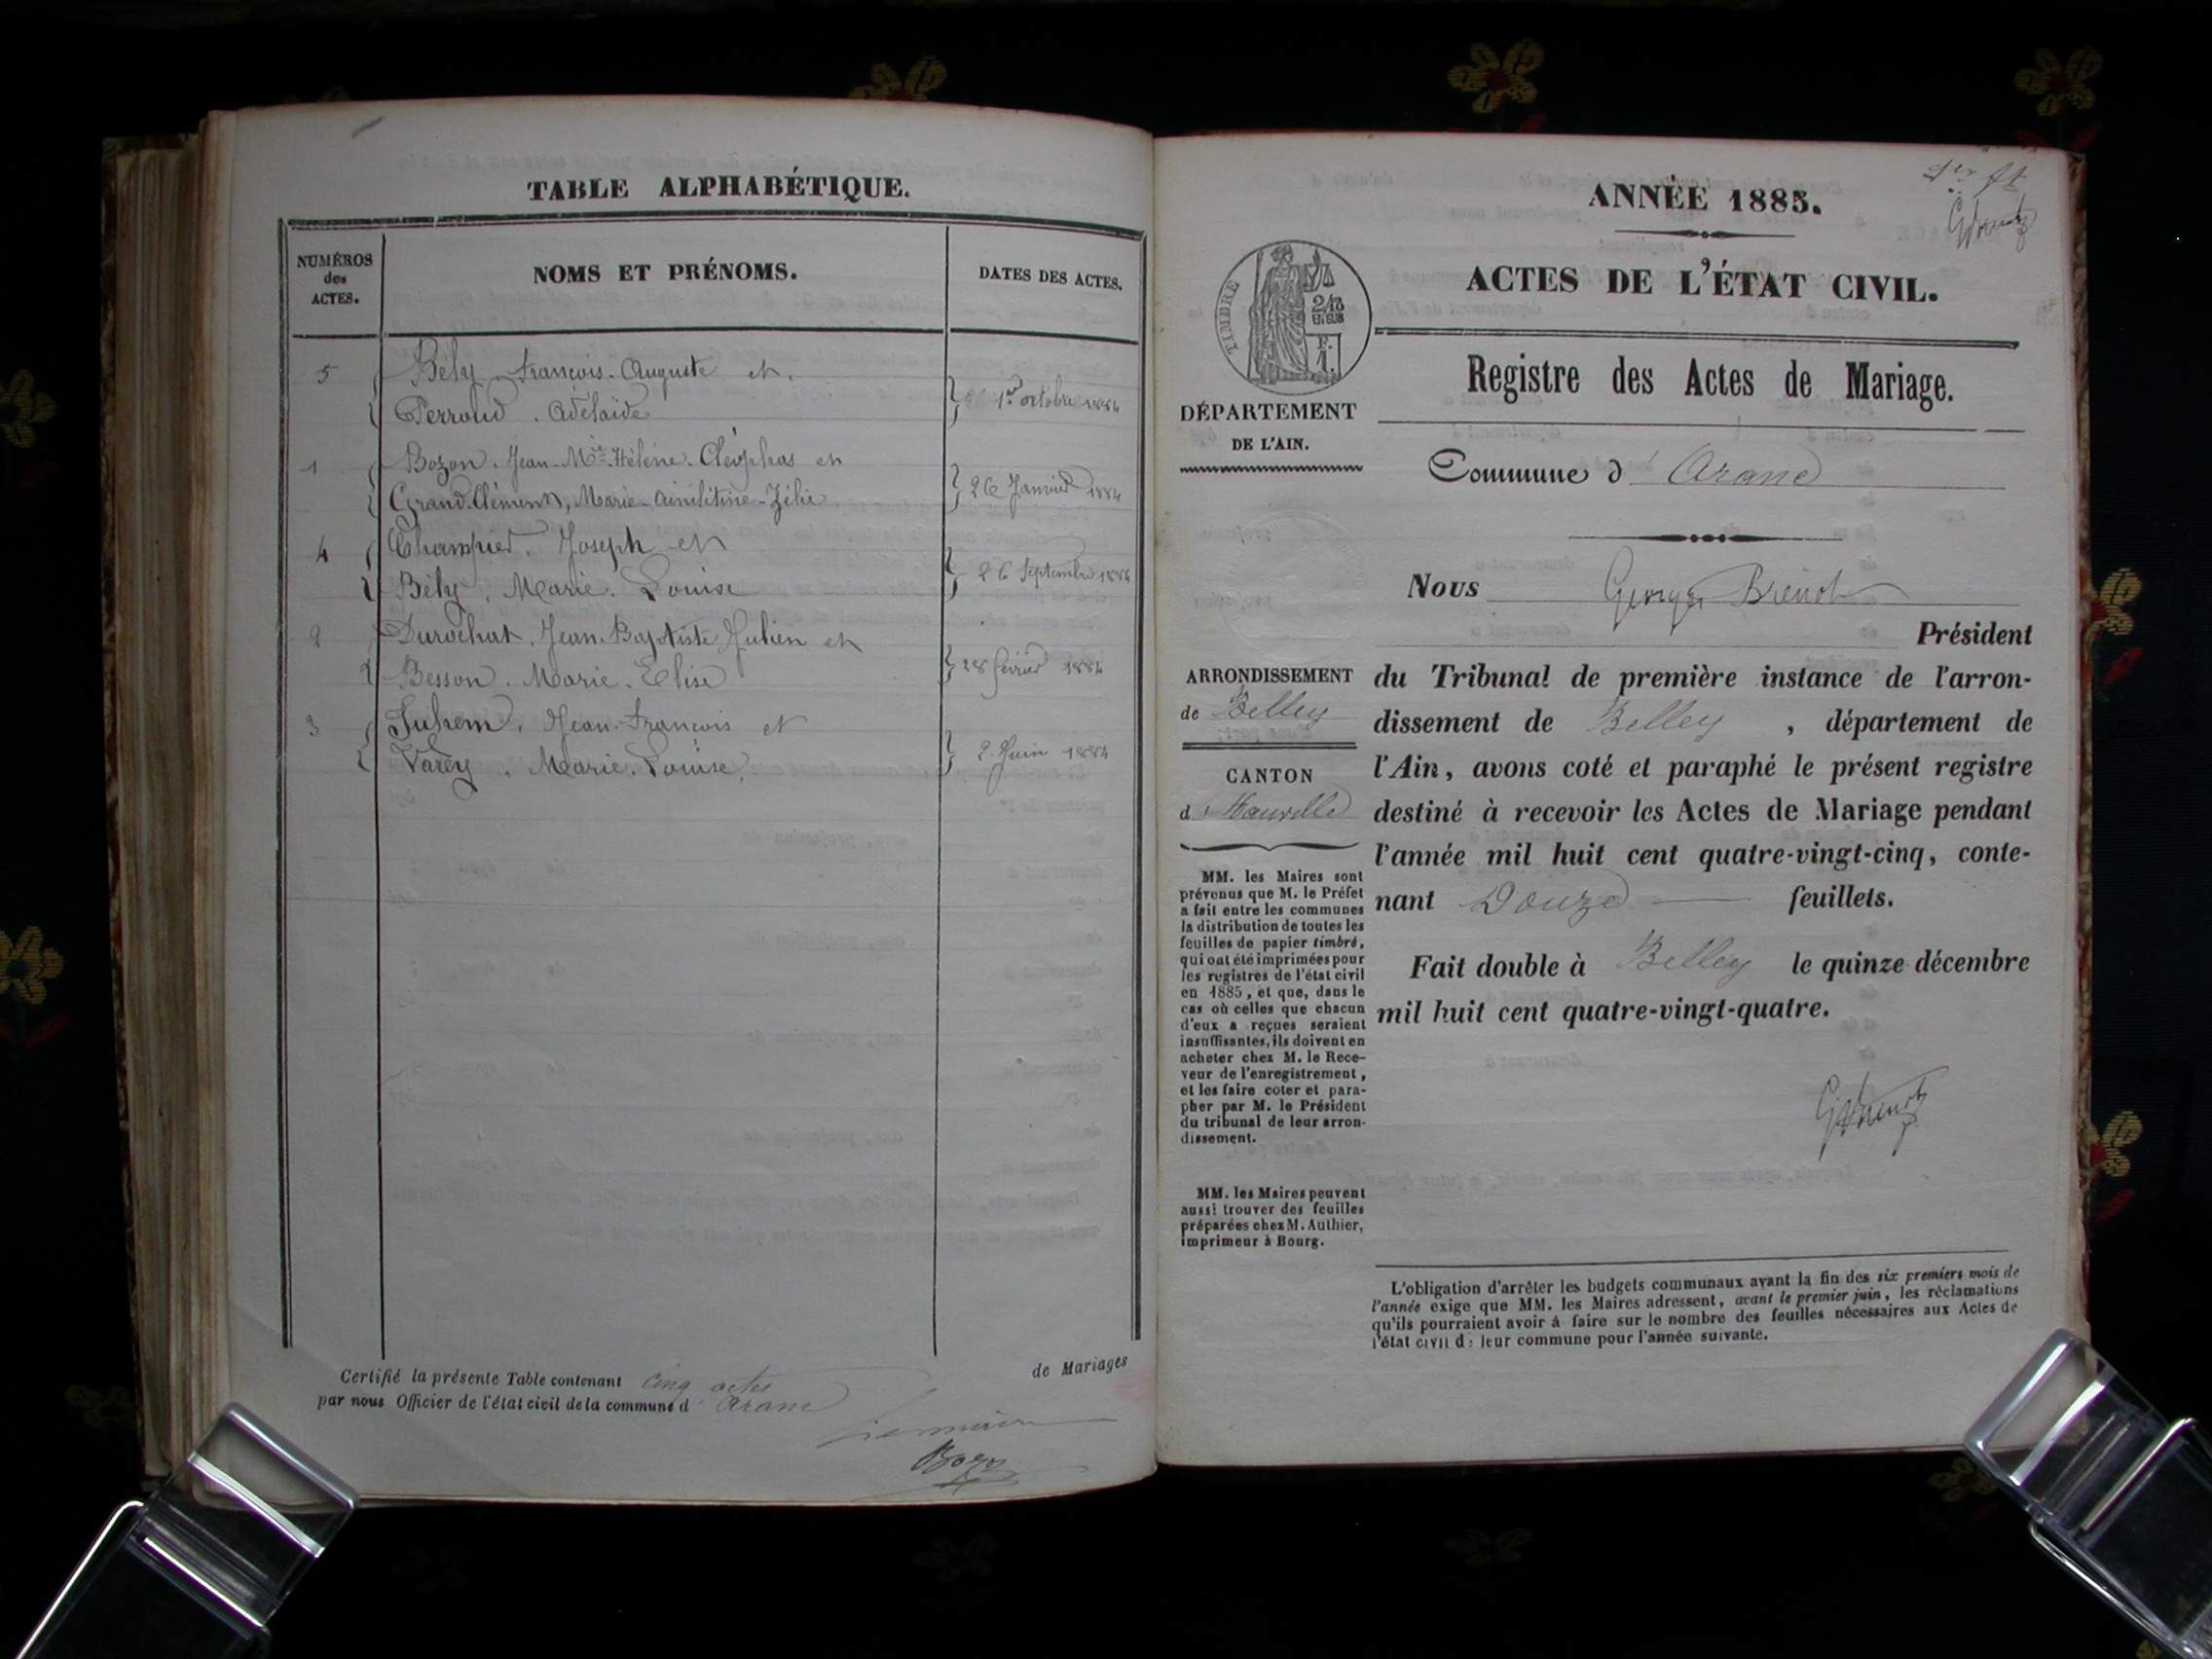 TABLE ALPHABÉTIQUE.
NUMÉROS des ACTES.
NOMS ET PRÉNOMS.
DATES DES ACTES.
5 Bély François-Auguste et
Perroud. Adélaïde
1er octobre 1884
1 Bozon. Jean-Mie-Hélène. Cléophas et
Grand-Clément, Marie- -Zélie
26 Janvier 1884
4 Champier. Joseph et
Bély, Marie. Louise
26 Septembre 1884
2 Durochat. Jean-Baptiste Julien et
Besson. Marie. Elise
28 février 1884
3 Juhem. Jean-François et
Varéy. Marie. Louise.
2 Juin 1884
Certifié la présente Table contenant cinq actes de Mariages
par nous Officier de l'état civil de la commune d' Arane
Le maire
Bozon
1er ft
GBrenot
ANNÉE 1885.
ACTES DE L'ÉTAT CIVIL.
TIMBRE
2/10
EN SUS
F.
1.
Registre des Actes de Mariage.
DÉPARTEMENT
DE L'AIN.
Commune d' Arane
Nous Georges Brenot
Président
ARRONDISSEMENT
de Belley
CANTON
d' Hauville
du Tribunal de première instance de l'arron-
dissement de Belley, département de
l'Ain, avons coté et paraphé le présent registre
destiné à recevoir les Actes de Mariage pendant
l'année mil huit cent quatre-vingt-cinq, conte-
nant Douze feuillets.
Fait double à Belley le quinze décembre
mil huit cent quatre-vingt-quatre.
GBrenot
MM. les Maires sont
prévenus que M. le Préfet
a fait entre les communes
la distribution de toutes les
feuilles de papier timbré,
qui ont été imprimées pour
les registres de l'état civil
en 1885, et que, dans le
cas où celles que chacun
d'eux a reçues seraient
insuffisantes, ils doivent en
acheter chez M. le Rece-
veur de l'enregistrement,
et les faire coter et para-
pher par M. le Président
du tribunal de leur arron-
dissement.
MM. les Maires peuvent
aussi trouver des feuilles
préparées chez M. Authier,
imprimeur à Bourg.
L'obligation d'arrêter les budgets communaux avant la fin des six premiers mois de
l'année exige que MM. les Maires adressent, avant le premier juin, les réclamations
qu'ils pourraient avoir à faire sur le nombre des feuilles nécessaires aux Actes de
l'état civil de leur commune pour l'année suivante.